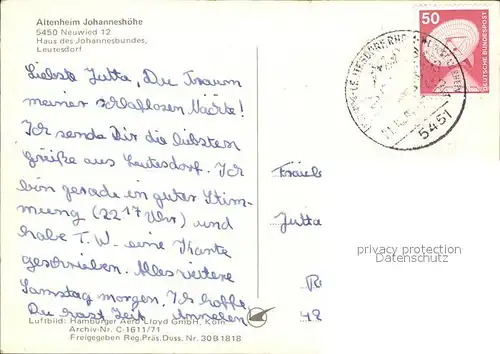 Altenheim Johanneshöhe
5450 Neuwied 12
Haus des Johannesbundes,
Leutesdorf
50
DEUTSCHE BUNDESPOST
5451
Liebste Jutta, Du Traum
meiner schlaflosen Nächte!
Ich sende Dir die liebsten
Grüße aus Leutesdorf. Ich
bin gerade in guter Stim-
mung (22 17 Uhr) und
habe T. W. eine Karte
geschrieben. Alles weitere
Samstag morgen. Ich hoffe,
Du hast Zeit
Fräulein
Jutta
privacy protection
Datenschutz
Luftbild: Hamburger Aero Lloyd GmbH, Köln
Archiv-Nr. C-1611/71
Freigegeben Reg.Präs. Düss. Nr. 30B1818